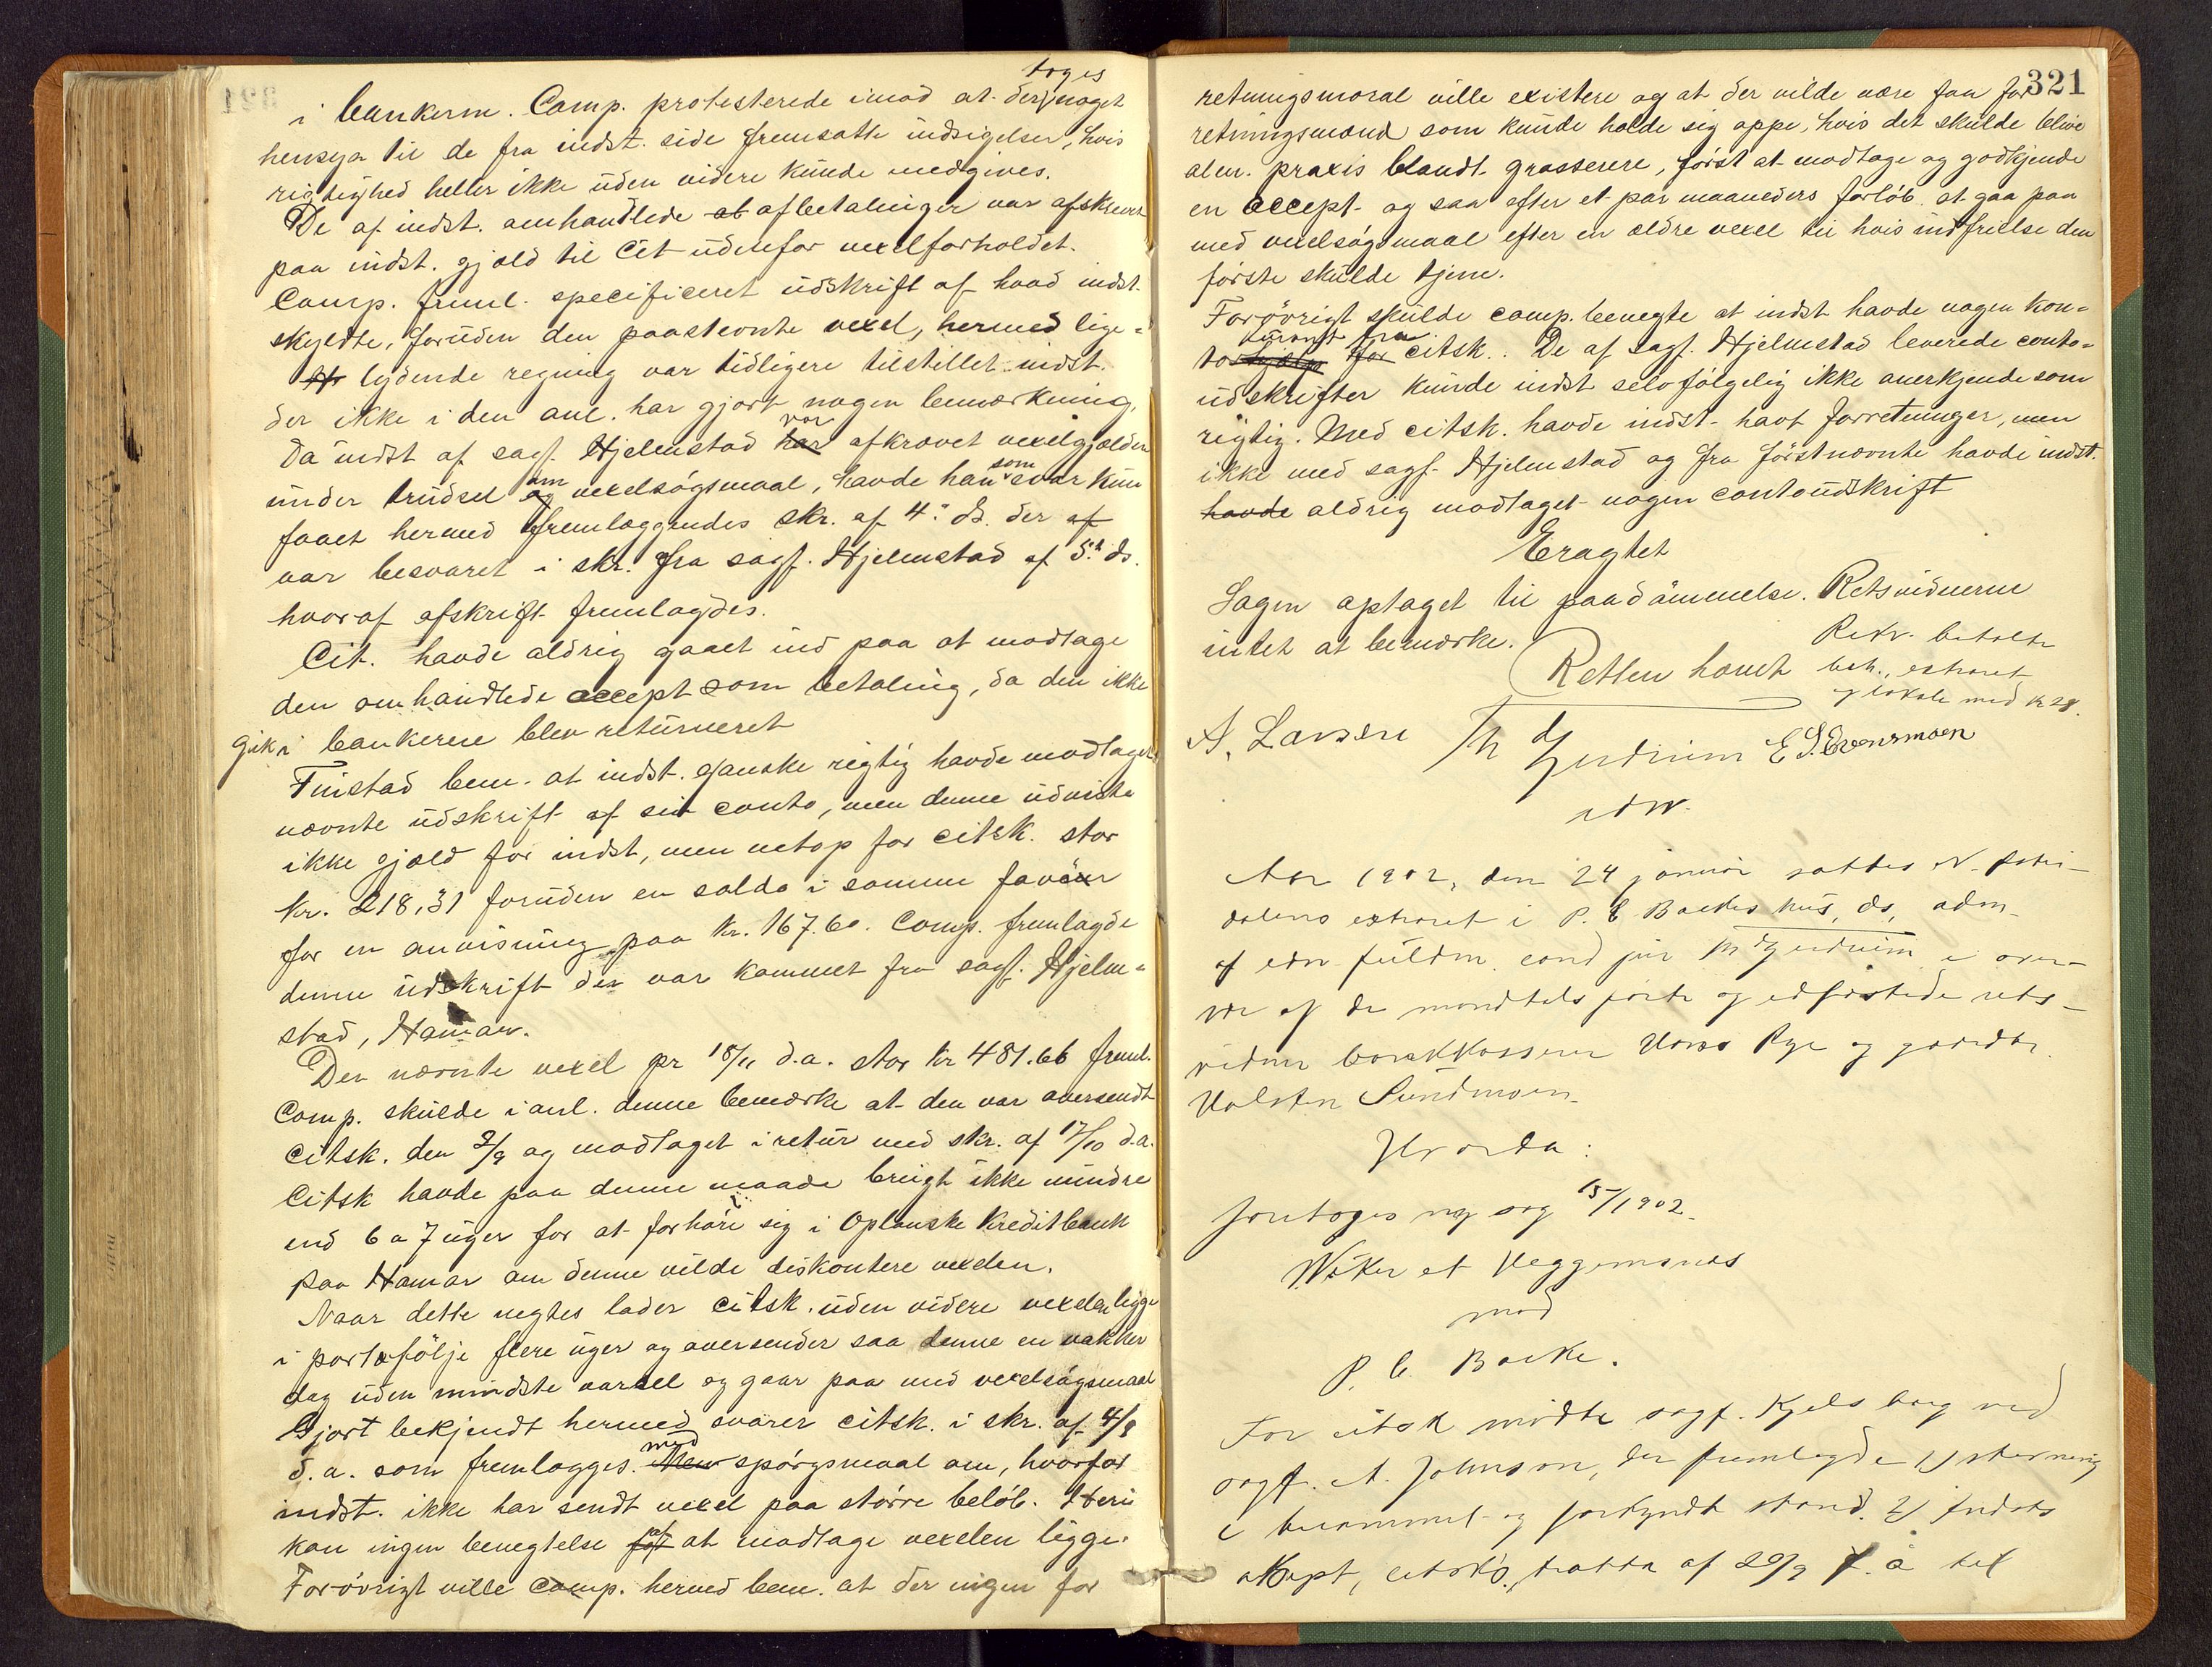 toges
i bankerne. Comp. protesterede imod at der noget
hensyn til de fra indst. side fremsatte indsigelser, hvis
rigtighed heller ikke uden videre kunde medgives.
De af indst. omhandlede ab afbetalinger var afskrevet
paa indst. gjæld til Cit udenfor vexelforholdet.
Comp. freml. specificeret udskrift af hvad indst.
skyldte, foruden den paastevnte vexel, hermed lige-
lydende regning var tidligere tilstillet indst.
der ikke i den anl. har gjort nogen bemærkning.
Da indst af sagf. Hjelmstad har var afkrævet vexelgjælden
under trudsel og om vexelsøgsmaal, havde han som svar kun
faaet hermed fremlæggendes skr. af 4de ds. der af
var besvaret i skr. fra sagf. Hjelmstad af 5te ds.
hvoraf afskrift fremlagdes.
Cit. havde aldrig gaaet ind paa at modtage
den omhandlede accept som betaling, da den ikke
gik i bankerne blev returneret
Finstad bem. at indst. ganske rigtig havde modtaget
nævnte udskrift af sin conto, men denne udviste
ikke gjæld for indst, men netop for citsk. stor
kr. 218,31 foruden en saldo i samme favør
for en anvisning paa kr. 167.60. Comp. fremlagde
denne udskrift der var kommet fra sagf. Hjelm-
stad, Hamar.
Den nævnte vexel pr 18/11 d.a. stor kr 481.66 freml.
Comp. skulde i anl. denne bemærke at den var oversendt
citsk. den 2/9 og modtaget i retur med skr. af 17/10 d.a.
Citsk havde paa denne maade brugt ikke mindre
end 6 a 7 uger for at forhøre sig i Oplanske Kreditbank
paa Hamar om denne vilde diskontere vexlen.
Naar dette negtes lader citsk. uden videre vexelen ligge
i portefølje flere uger og oversender saa denne en vakker
dag uden mindste varsel og gaar paa med vexelsøgsmaal
Gjort bekjendt hermed svarer citsk. i skr. af 4/9
d.a. som fremlægges. Men med spørgsmaal om, hvorfor
indst. ikke har sendt vexel paa større beløb. Heri
kan ingen benegtelse for af at modtage vexelen ligge.
Forøvrigt ville comp. herved bem. at der ingen for
321
retningsmoral ville existere og at der vilde være faa for
retningsmænd som kunde holde sig oppe, hvis det skulde blive
alm. praxis blandt grosserere, først at modtage og godkjende
en accept og saa efter et par maaneders forløb at gaa paa
med vexelsøgsmaal efter en ældre vexel til hvis indfrielse den
første skulde tjene.
Forøvrigt skulde comp. benegte at indst havde nogen kon-
tokurant fra for citsk. De af sagf. Hjelmstad leverede conto-
udskrifter kunde indst selvfølgelig ikke anerkjende som
rigtig. Med citsk. havde indst. havt forretninger, men
ikke med sagf. Hjelmstad og fra førstnævnte havde indst.
havde aldrig modtaget nogen contoudskrift
Eragtet
Sagen optaget til paadømmelse. Retsvidnerne
intet at bemærke.
Retten hævet
Rekv. betalte
beh., extraret
og lokale med kr 28.
A. Larsen Th Gudrim E. S. Evensmoen
edv.
Aar 1902, den 24 januar sattes N. Øster-
dalens extraret i P. C Backes hus, ds, adm.
af edsv fuldm. cand jur Th Gudrim i over-
vær af de mandtalsførte og edfæstede rets-
vidner Hans Rye og gaardbr.
Halsten Sundmoen
Hvorda:
foretoges ny sag 15/1 1902.
Wiker et Heggemsnes
mod
P. C. Backe.
For citsk mødte sagf. Kjelsberg ved
sagf. A. Johnson, der fremlagde 1) stevning
i berammet og forkyndt stand. 2) Indsts
akcept, citsk's tratta af 20/9 f. å til